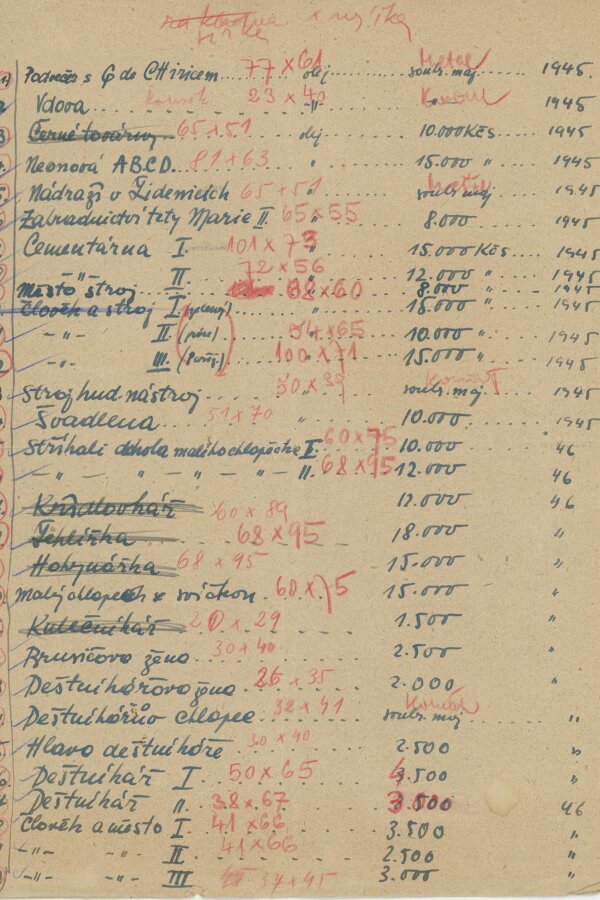 x
šířka
Podnos s G de CHiricem 77 x 61 olej soukr. maj 1945.
Vdova 23 x 40 " 1945
Černé továrny 65 x 51 olej 10.000 Kčs 1945
Neonová A.B.C.D. 81 x 63 " 15.000 " 1945
Nádraží v Židenicích 65 x 51 " soukr. maj 1945
Zahradnictví tety Marie II 65 x 55 " 8.000 1945
Cementárna I 101 x 73 " 15.000 Kčs 1945
-"- II 72 x 56 12.000 " 1945
Město stroj 82 x 60 8.000 " 1945
Člověk a stroj I (zelený) " 15.000 " 1945
-"- II 54 x 65 10.000 " 1945
-"- III 100 x 71 15.000 " 1945
Stroj hud. nástroj 50 x soukr. maj 1945
Švadlena 51 x 70 " 10.000 1945
Stříhali dohola malého chlapečka I. 60 x 75 10.000 46
- " - " - " - " - II. 68 x 95 12.000 46
60 x 89 12.000 46
68 x 95 18.000 "
68 x 95 15.000 "
Malý chlapech s 60 x 75 15.000 "
Kulečníkář 20 x 29 1.500 "
Brusičova žena 30 x 40 2.500 "
Deštníkářova žena 26 x 35 2.000 "
Deštníkářův chlapec 32 x 41 soukr. maj "
Hlava deštníkáře 30 x 40 2.500 "
Deštníkář I 50 x 65 4.500 "
Deštníkář II. 38 x 67 3.500 46
Člověk a město I 41 x 66 3.500 "
-"- -"- II 41 x 66 2.500 "
-"- -"- III 37 x 45 3.000 "